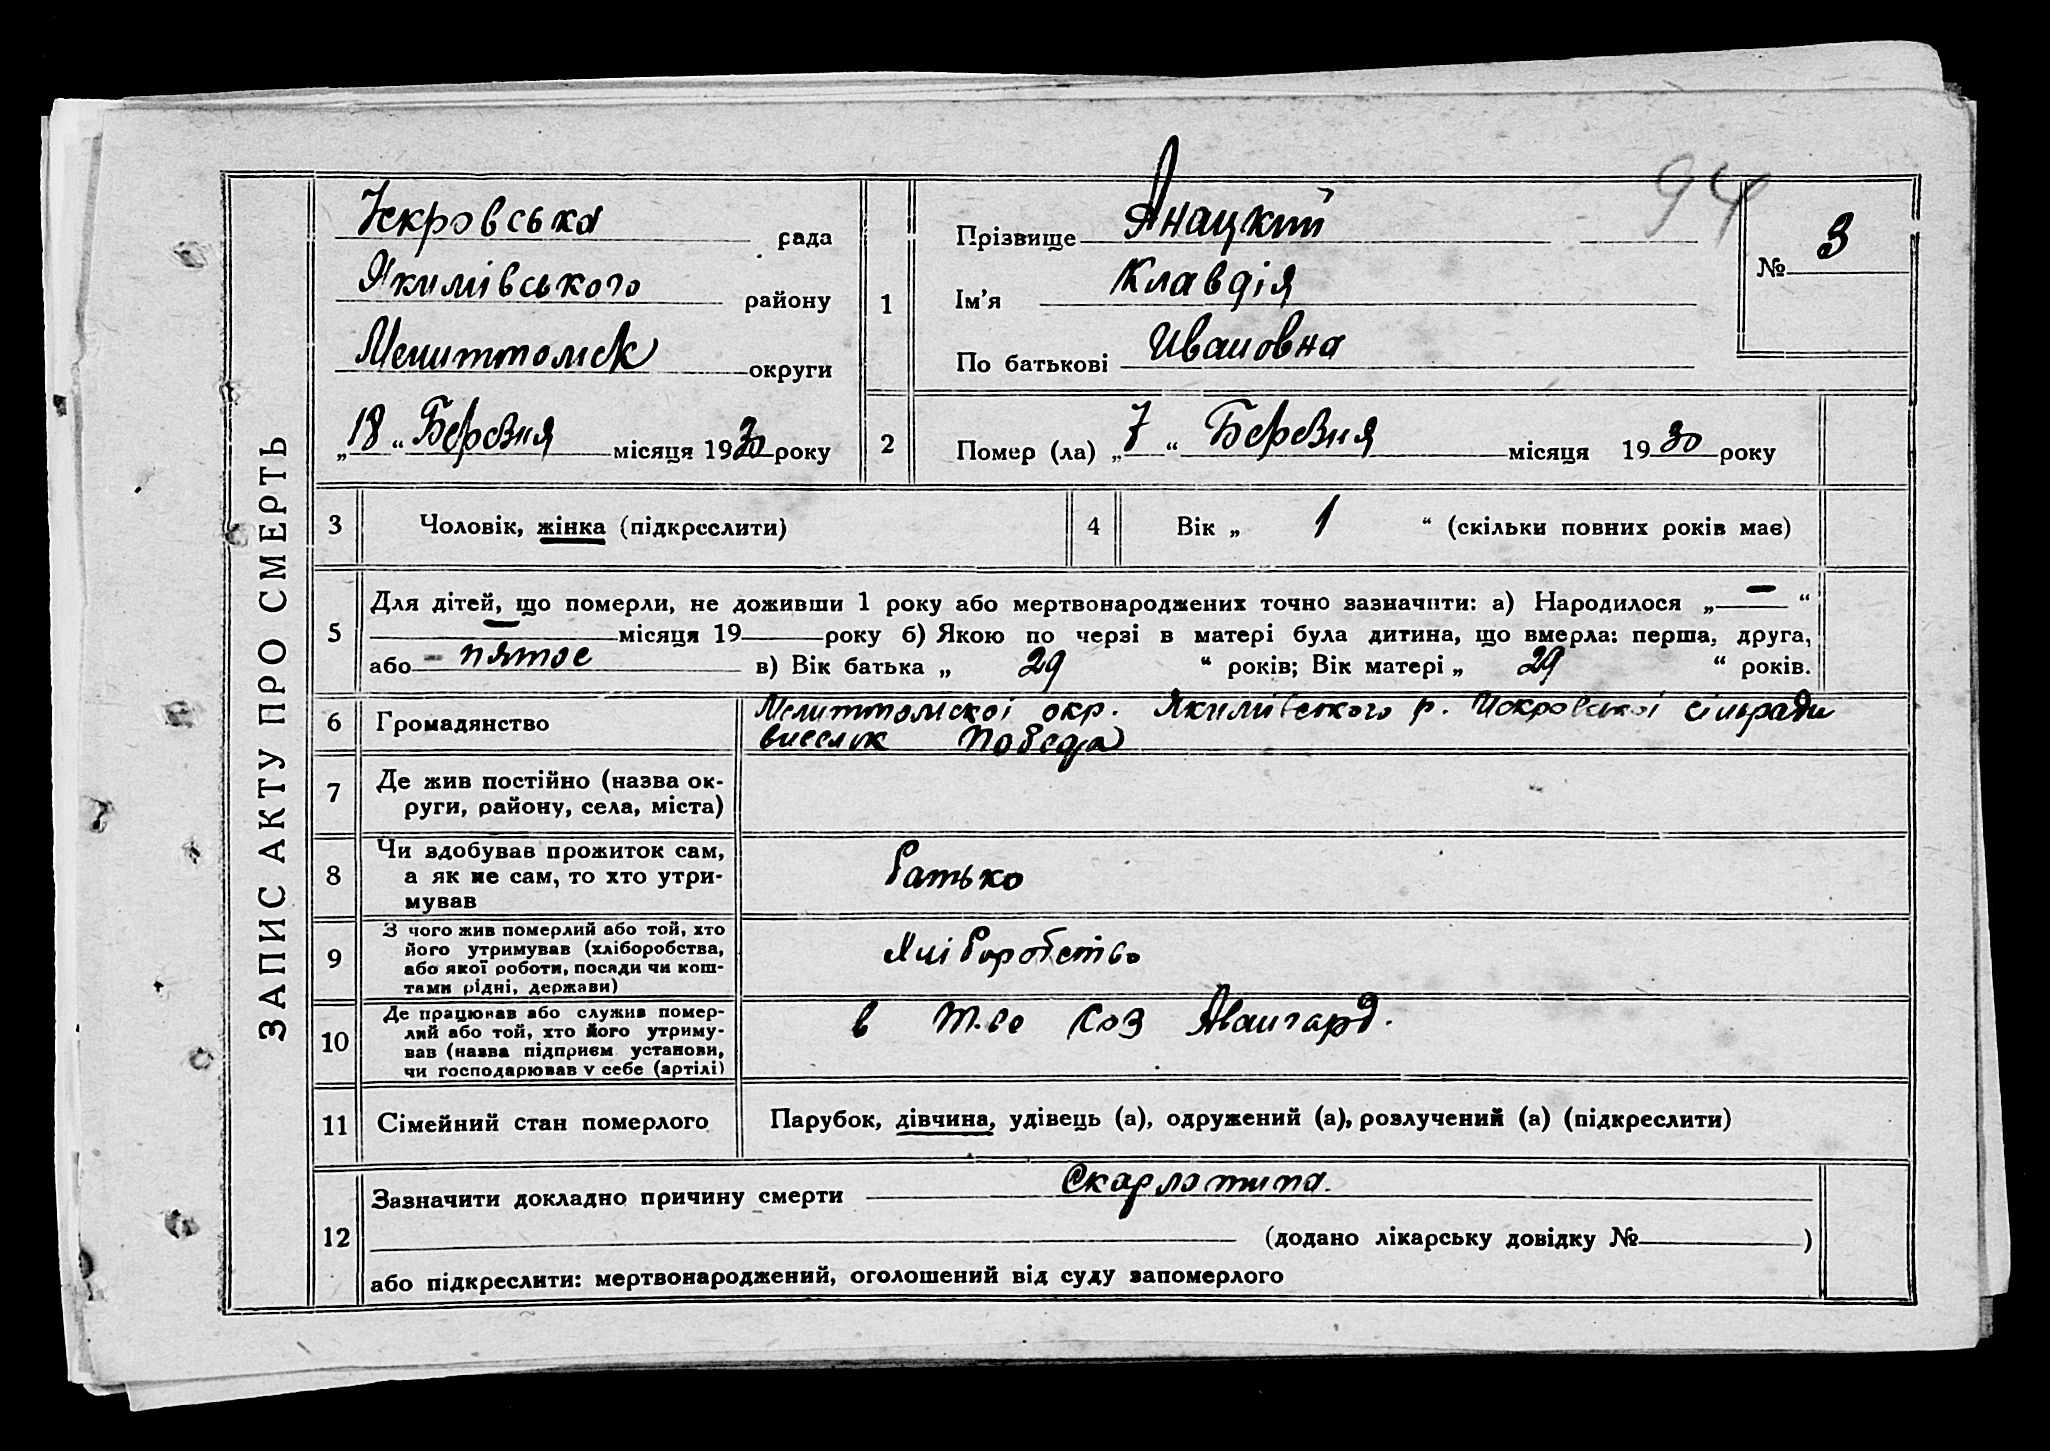 ЗАПИС АКТУ ПРО СМЕРТЬ
94
Искровська рада
Якимівського району
Мелиттомск округи
„18“ Березня місяця 1930 року
1
Прізвище Янацкий
Ім’я Клавдія
По батькові Ивановна
№ 3
2
Помер (ла) „7“ Березня місяця 1930 року
3 Чоловік, жінка (підкреслити)
4 Вік „ 1 “ (скільки повних років має)
5
Для дітей, що померли, не доживши 1 року або мертвонароджених точно зазначити: а) Народилося „ — “
— місяця 19 року б) Якою по черзі в матері була дитина, що вмерла: перша, друга,
або - пятое в) Вік батька „ 29 “ років; Вік матері „ 29 “ років.
6 Громадянство
Мелиттомскоі окр. Якилівського р. Искровськоі сільради
виселок Победа
7 Де жив постійно (назва ок-
руги, району, села, міста)
8
Чи здобував прожиток сам,
а як не сам, то хто утри-
мував
батько
9
З чого жив померлий або той, хто
його утримував (хліборобства,
або якої роботи, посади чи кош-
тами рідні, держави)
хліборобство
10
Де працював або служив помер-
лий або той, хто його утриму-
вав (назва підприєм установи,
чи господарював у себе (артілі)
в т-ве Соз Авангард.
11 Сімейний стан померлого
Парубок, дівчина, удівець (а), одружений (а), розлучений (а) (підкреслити)
12
Зазначити докладно причину смерти Скарлотина.
(додано лікарську довідку № )
або підкреслити: мертвонароджений, оголошений від суду запомерлого